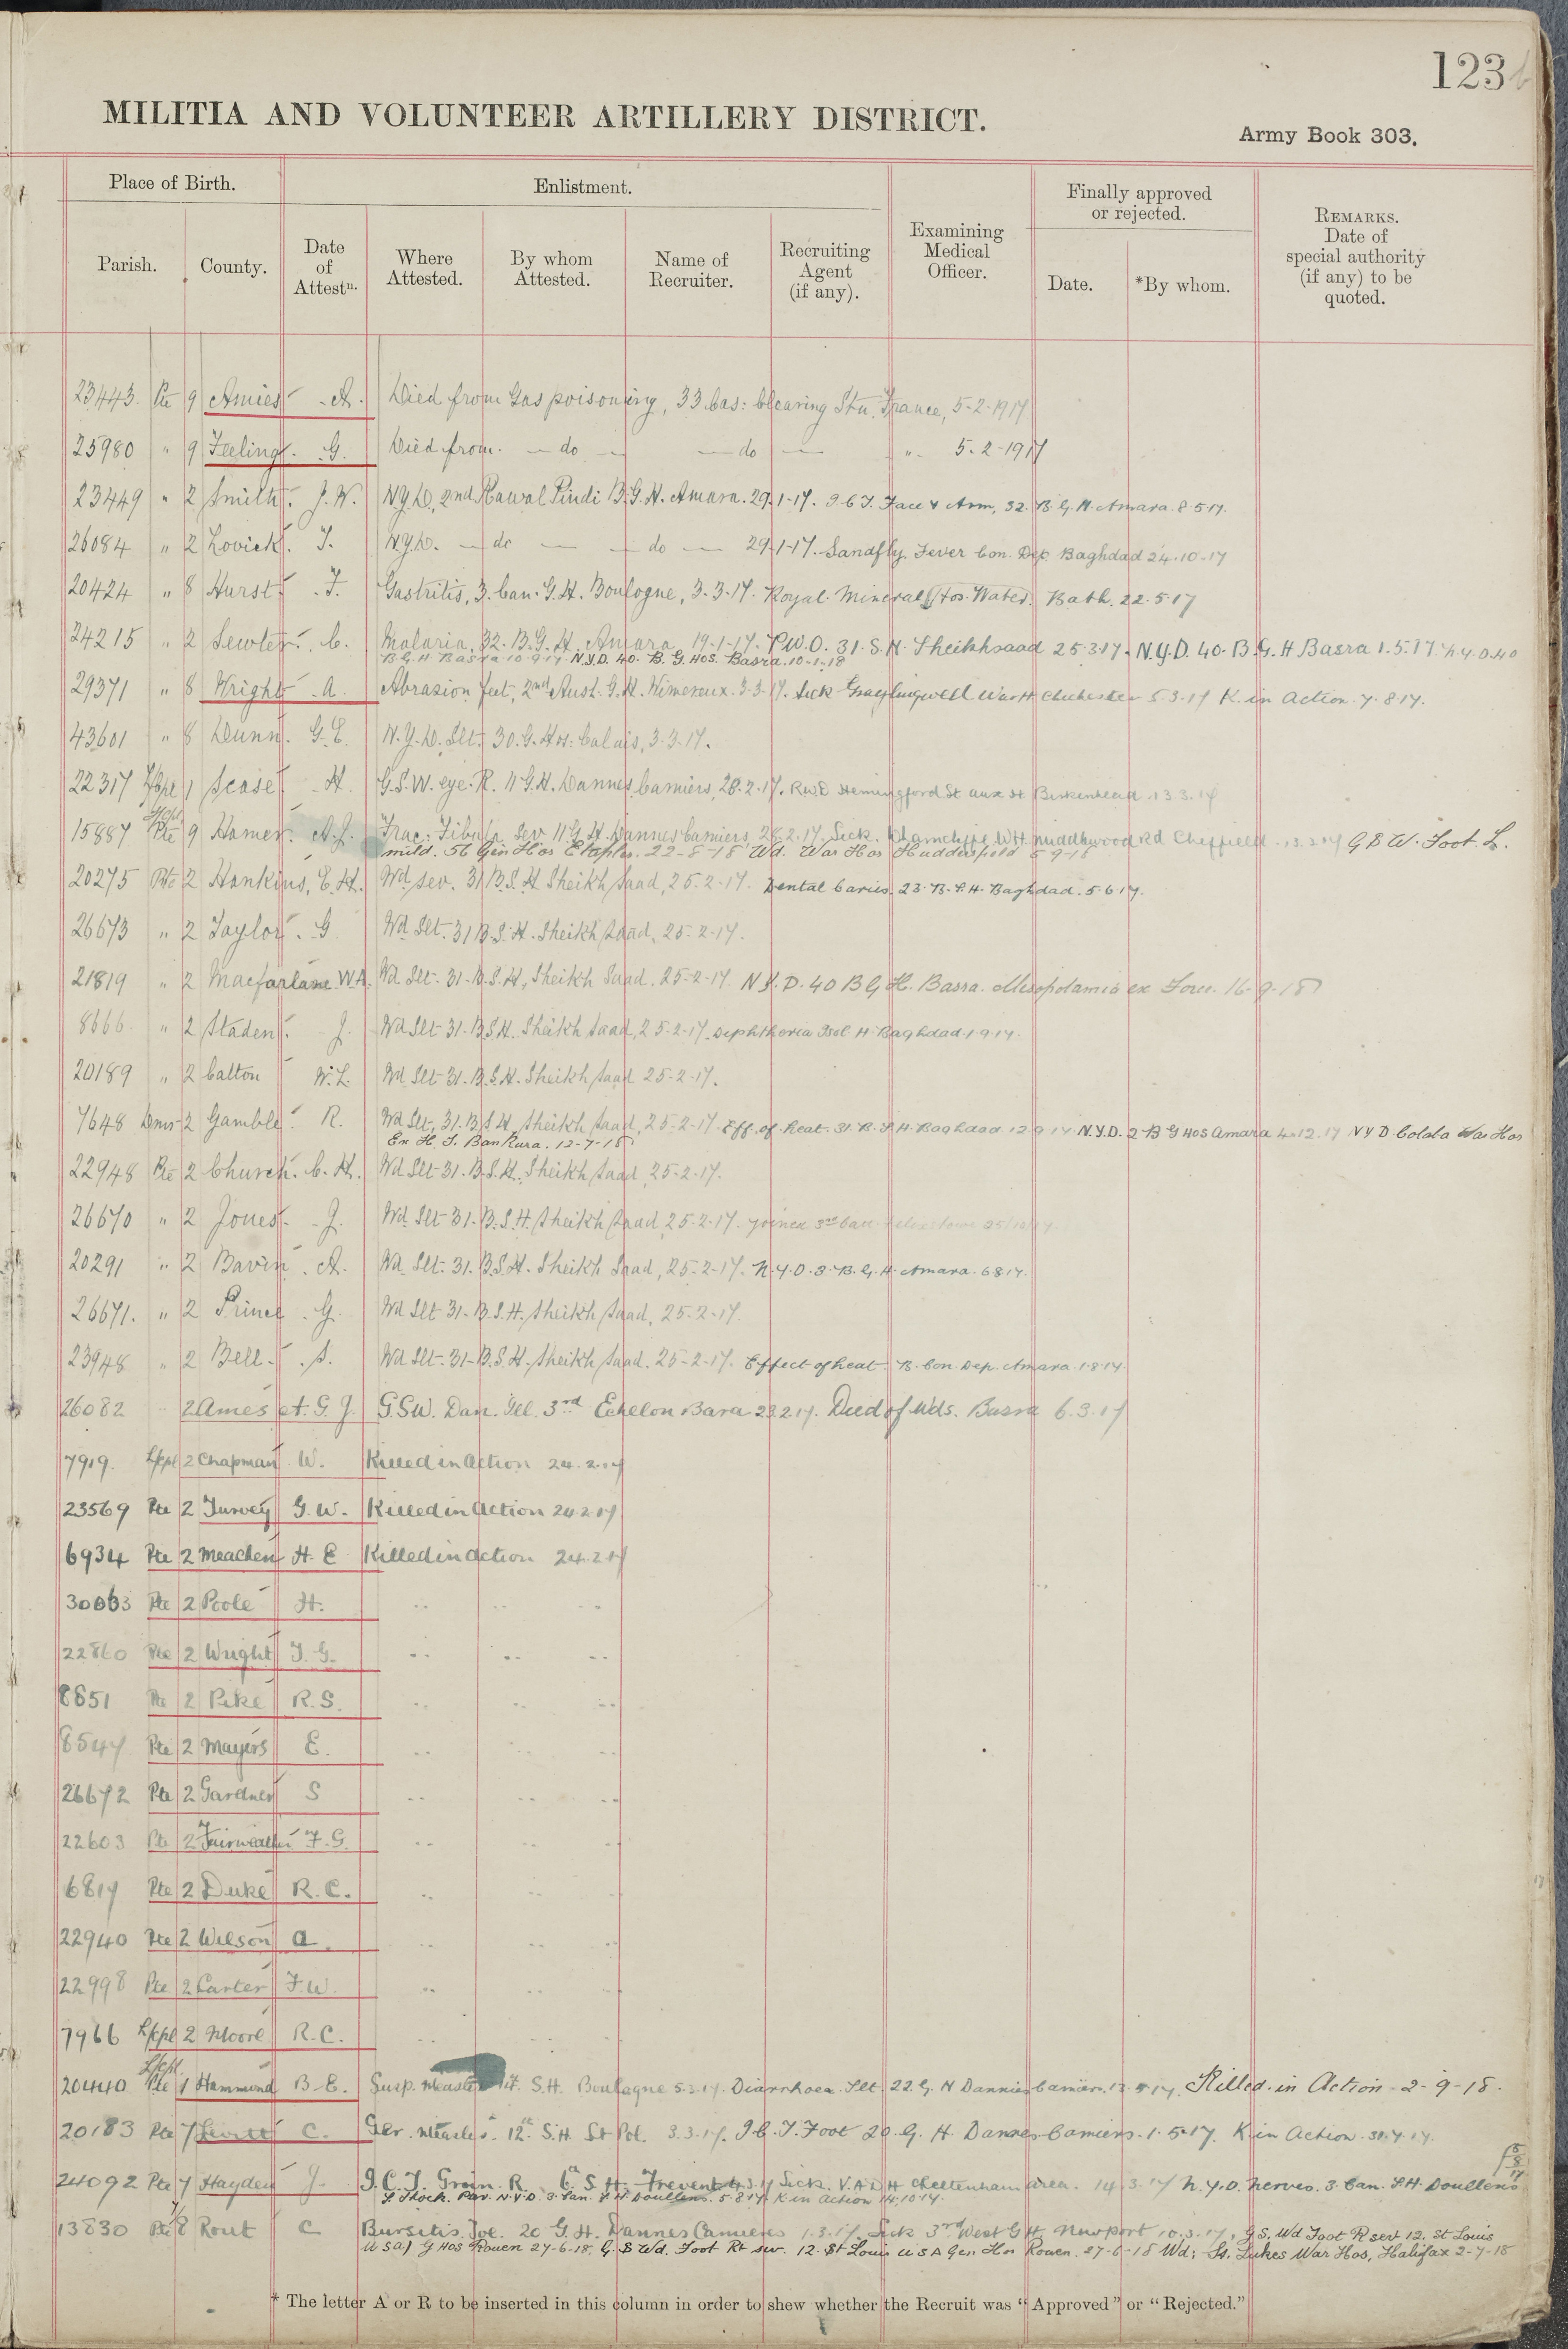 123
MILITIA AND VOLUNTEER ARTILLERY DISTRICT.
Army Book 303.
Place of Birth.
Enlistment.
Finally approved or rejected.
REMARKS. Date of special authority (if any) to be quoted.
Parish.
County.
Date of Attestn.
Where Attested.
By whom Attested.
Name of Recruiter.
Recruiting Agent (if any).
Examining Medical Officer.
Date.
*By whom.
23443 Pte 9 Amies A. Died from Gas poisoning, 33 Cas: Clearing Stn. France, 5-2-1917
25980 " 9 Feeling G. Died from. — do — — do — " 5-2-1917
23449 " 2 Smith J.W. N.Y.D. 2nd Rawal Pindi B.G.H. Amara. 29-1-17. I.C.T. Face & Arm, 32. B.G.H. Amara. 8.5.17.
26084 " 2 Lovick T. N.Y.D. — do — — do — 29-1-17. Sandfly Fever Con. Dep. Baghdad 24.10.17
20424 " 8 Hurst F. Gastritis, 3. Can. G.H. Boulogne, 3.3.17. Royal Mineral Water Bath. 22.5.17
24215 " 2 Sewter C. Malaria, 32. B.G.H. Amara 19-1-17. P.U.O. 31. S.H. Sheikhsaad 25.3.17. N.Y.D. 40. B.G.H Basra 1.5.17. N.Y.D.40
B G H Basra 10.9.17 N.Y.D. 40. B. G. HOS. Basra. 10-1-18
29371 " 8 Wright A. Abrasion feet, 2nd Aust. G.H. Wimereux. 3-3-17. Sick Graylingwell War H Chichester 5.3.17 K. in Action. 7.8.17.
43601 " 8 Dunn G.E. N.Y.D. Slt. 30. G. Hos: Calais, 3-3-17.
22317 L/Cpl 1 Scase H. G.S.W. eye. R. 11 G.H. Dannes Camiers, 28.2.17. Hemingford St aux H Birkenhead. 13 3.17
L/Cpl
15887 Pte 9 Homer A.J. Frac. Fibula Sev 11 G.H. Dannes Camiers, 28.2.17. Sick. Wharncliffe W.H. Middlewood Rd Cheffield. G S W. Foot. L.
mild. 56 Gen Hos Etaples. 22-8-18 Wd. War Hos Huddersfield 5-9-18
20275 Pte 2 Hankins, E.H. Wd sev. 31 B.S.H Sheikh Saad, 25-2-17. Dental Caries. 23. B.S.H. Baghdad. 5.6.17.
26673 " 2 Taylor G Wd Slt. 31 B.S.H. Sheikh Saad, 25-2-17.
21819 " 2 Macfarlane W.A. Wd Slt. 31. B.S.H. Sheikh Saad. 25-2-17. N.Y.D. 40 B G H. Basra. Mesopotamia ex Force. 16-9-18
8666 " 2 Staden J. Wd Slt 31. B.S.H. Sheikh Saad, 25-2-17. Diphtheria Isol H. Baghdad. 1.9.17.
20189 " 2 Catton W.L. Wd Slt 31. B.S.H. Sheikh Saad 25-2-17.
7648 Dmr 2 Gamble R. Wd Slt, 31. B.S.H. Sheikh Saad, 25-2-17. Eff. of heat. 31. B.S.H. Baghdad 12.9.17. N.Y.D. 2 B G HOS Amara 4.12.17 N Y D Colaba War Hos
Ex H S. Bankura. 12-7-18
22948 Pte 2 Church C.H. Wd Slt 31. B.S.H. Sheikh Saad, 25-2-17.
26670 " 2 Jones J. Wd Slt 31. B.S.H. Sheikh Saad, 25-2-17. Joined 3rd Batt. Felixstowe
20291 " 2 Bavin A. Wd Slt. 31. B.S.H. Sheikh Saad, 25-2-17. N.Y.D. 3. B.G.H. Amara. 6.8.17.
26671. " 2 Prince G. Wd Slt 31. B.S.H. Sheikh Saad, 25-2-17.
23948 " 2 Bell S. Wd Slt. 31. B.S.H. Sheikh Saad. 25-2-17. Effect of heat. B. Con. Dep. Amara. 1.8.17.
26082 2 Ames A.G.J. G.S.W. Dan. Ill. 3rd Echelon Basra 23.2.17. Died of Wds. Basra 6.3.17
7919. L/Cpl 2 Chapman W. Killed in Action 24.2.17
23569 Pte 2 Turvey G.W. Killed in Action 24.2.17
6934 Pte 2 Meachen H.E Killed in Action 24.2.17
30063 Pte 2 Poole H. " " "
22860 Pte 2 Wright T.G. " " "
8851 Pte 2 Pike R.S. " " "
8547 Pte 2 Mayers E. " " "
26672 Pte 2 Gardner S " " "
22603 Pte 2 Fairweather F.G. " " "
6817 Pte 2 Duke R.C. " " "
22940 Pte 2 Wilson A. " " "
22998 Pte 2 Carter F.W. " " "
7966 L/Cpl 2 Moore R.C. " " "
L/Cpl
20440 Pte 1 Hammond B.E. Susp. Measles 14. S.H. Boulogne 5.3.17. Diarrhoea Slt 22. G.H Dannes Camiers. Killed in Action - 2-9-18.
20183 Pte 7 Levitt C. Ger. Measles. 12th S.H. St Pol. 3.3.17. I.C.T. Foot 20. G.H. Dannes Camiers. 1.5.17. K in Action.
24092 Pte 7 Hayden J. I.C.T. Groin. R. 6th S.H. Frevent 4.3.17 Sick. V.A.D H Cheltenham area. 14.3.17 N.Y.D. nerves. 3. Can. S.H. Doullens
S. Shock. N.Y.D. 3. Can. S H Doullens. 5.8.17. K in action 14.10.17.
13830 Pte 8 Rout C Bursitis Toe. 20 G.H. Dannes Camieres 1.3.17. Sick 3rd West G H. Newport 10.3.17, G S. Wd Foot R sev 12. St Louis
U S A) G HOS Rouen 27-6-18. G. S Wd. Foot Rt sev. 12. St Louis U S A Gen Hos Rouen. 27-6-18 Wd; St. Lukes War Hos, Halifax 2-7-18
* The letter A or R to be inserted in this column in order to shew whether the Recruit was "Approved" or "Rejected."